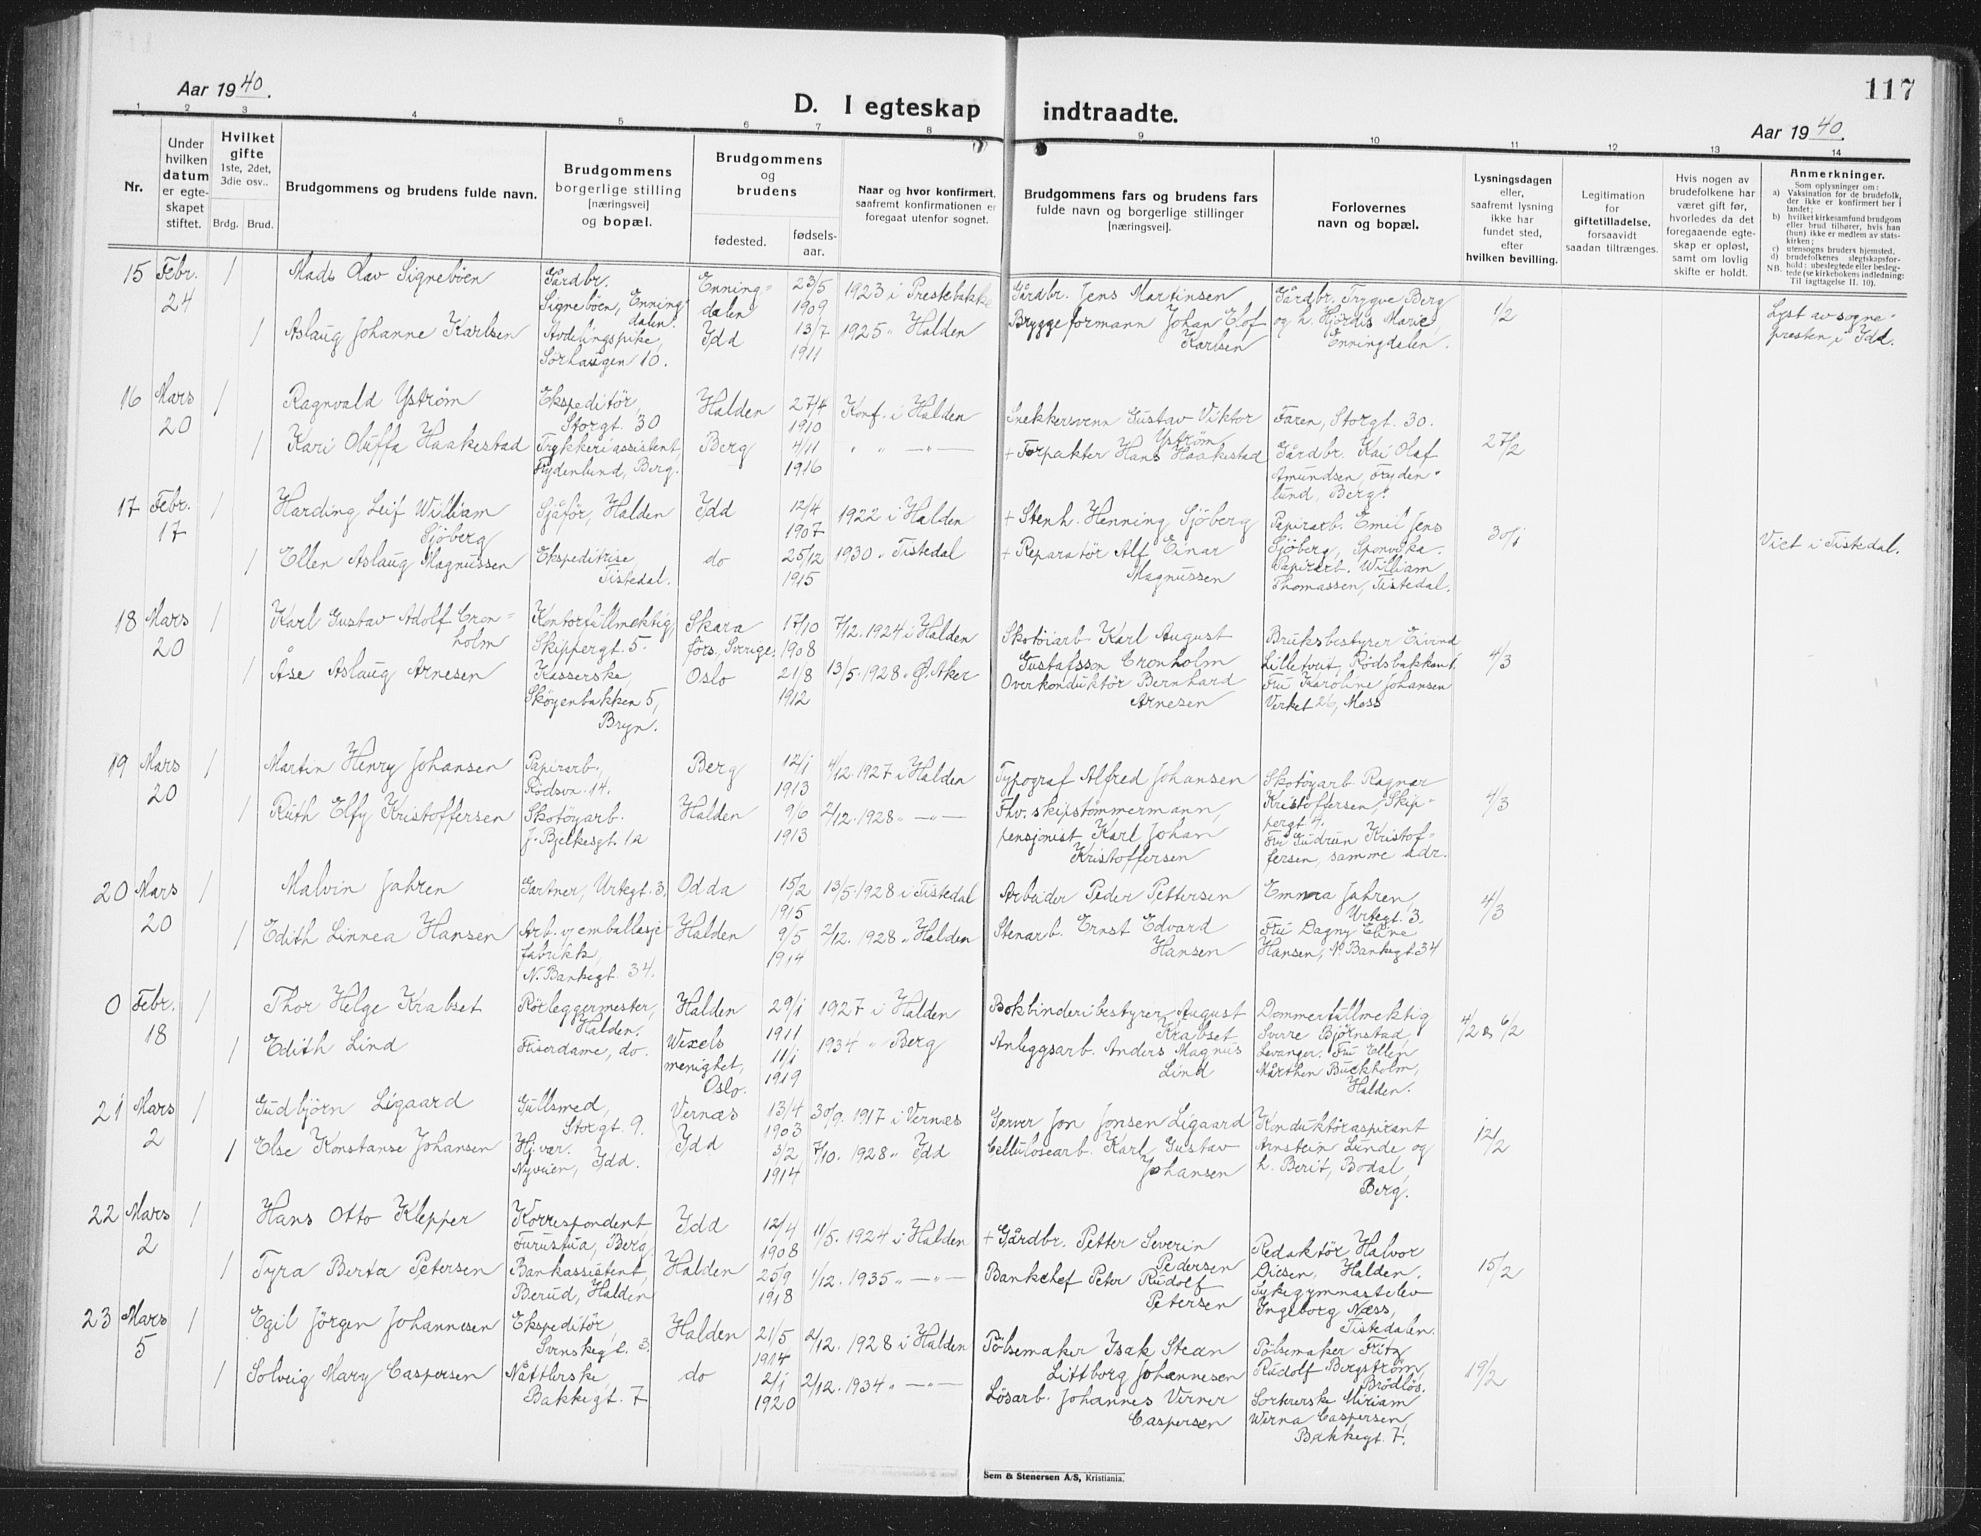 Aar 1940.
D. I egteskap indtraadte.
117
Aar 1940.
1 2 3 4 5 6 7 8 9 10 11 12 13 14
Nr.
Under
hvilken
datum
er egte-
skapet
stiftet.
Hvilket
gifte
1ste, 2det,
3die osv..
Brdg. Brud.
Brudgommens og brudens fulde navn.
Brudgommens
borgerlige stilling
[næringsvei]
og bopæl.
Brudgommens
og
brudens
fødested.
fødsels-
aar.
Naar og hvor konfirmert,
saafremt konfirmationen er
foregaat utenfor sognet.
Brudgommens fars og brudens fars
fulde navn og borgerlige stillinger
[næringsvei].
Forlovernes
navn og bopæl.
Lysningsdagen
eller,
saafremt lysning
ikke har
fundet sted,
efter
hvilken bevilling.
Legitimation
for
giftetilladelse,
forsaavidt
saadan tiltrænges.
Hvis nogen av
brudefolkene har
været gift før,
hvorledes da det
foregaaende egte-
skap er opløst,
samt om lovlig
skifte er holdt.
Anmerkninger.
Som oplysninger om:
a) Vaksination for de brudefolk,
der ikke er konfirmert her i
landet;
b) hvilket kirkesamfund brudgom
eller brud tilhører, hvis han
(hun) ikke er medlem av stats-
kirken;
c) utensogns bruders hjemsted.
d) brudefolkenes slegtskapsfor-
hold: ubeslegtede eller besleg-
NB. tede (se kirkebokens indledning:
Til iagttagelse II. 10).
15 Febr. 24
1
Mads Olav Signebøen
Gårdbr.
Signebøen, Enning-
dalen.
Enning-
dalen
23/5
1909
1923 i Prestebakke
Gårdbr. Jens Martinsen
Gårdbr. Trygve Berg
og h. Hjørdis Marie,
Enningdalen.
1/2
Lyst av sogne-
presten i Idd.
1
Aslaug Johanne Karlsen
Avdelingspike,
Sørhaugen 10.
Idd
13/7
1911
1925 " Halden
Bryggeformann Johan Elof
Karlsen
16 Mars 20
1
Ragnvald Ystrøm
Ekspeditør,
Storgt. 30
Halden
27/4
1910
Konf. i Halden
Snekkersvenn Gustav Viktor
Ystrøm
Faren, Storgt. 30.
27/2
1
Kari Oluffa Haakestad
Trykkeriassistent,
Frydenlund, Berg.
Berg
4/11
1916
" " — " —
+ Forpakter Hans Haakestad
Gårdbr. Kai Olaf
Amundsen, Fryden-
lund, Berg.
17 Febr. 17
1
Harding Leif William
Sjøberg
Sjåfør, Halden
Idd
12/4
1907
1922 i Halden
+ Stenh. Henning Sjöberg
Papirarb. Emil Jens
Sjöberg, Sponvika.
30/1
Viet i Tistedal.
1
Ellen Aslaug Magnussen
Ekspeditrise,
Tistedal.
do
25/12
1915
1930 " Tistedal
+ Reparatør Alf Einar
Magnussen
Papirarb. William
Thomassen, Tistedal.
18 Mars 20
1
Karl Gustav Adolf Cron-
holm
Kontorfullmektig
Skippergt. 5.
Skara
förs., Sverige.
17/10
1908
7/12. 1924 i Halden
Skotöiarb Karl August
Gustafsson Cronholm
Bruksbestyrer Eivind
Lilletvut, Rødsbakken.
4/3
1
Åse Aslaug Arnesen
Kasserske,
Skøyenbakken 5,
Bryn.
Oslo
21/8
1912
13/5. 1928 " Ø. Aker
Overkonduktör Bernhard
Arnesen
Fru Karoline Johansen
Verket 26, Moss
19 Mars 20
1
Martin Henry Johansen
Papirarb.
Rødsvn. 14.
Berg
12/1
1913
4/12. 1927 i Halden
Typograf Alfred Johansen
Skotøyarb Ragnar
Kristoffersen, Skip-
pergt 4.
4/3
1
Ruth Elfy Kristoffersen
Skotøyarb.
J. Bjelkesgt. 1a
Halden
9/6
1913
2/12. 1928 " — " —
Fhv. skipstømmermann,
pensjonist Karl Johan
Kristoffersen
Fru Gudrun Kristof-
fersen, samme adr.
20 Mars 20
1
Malvin Jahren
Gartner, Urtegt. 3.
Odda
15/2
1915
13/5. 1928 i Tistedal
Arbeider Peder Pettersen
Emma Jahren,
Urtegt. 3.
4/3
1
Edith Linnea Hansen
Arb. v/ emballasje
fabrikk,
N. Bankegt. 34.
Halden
9/5
1914
2/12. 1928 " Halden
Stenarb. Ernst Edvard
Hansen
Fru Dagny Eline
Hansen, N. Bankegt 34
0 Febr. 18
1
Thor Helge Krabset
Rørleggermester,
Halden.
Halden
29/1
1911
1927 i Halden
Bokbinderibestyrer August
Krabset
Dommerfullmektig
Sverre Bjørnstad,
Levanger.
4/2 & 6/2
1
Edith Lind
Friserdame, do.
Wexels
menighet,
Oslo.
11/1
1919
1934 " Berg
Anleggsarb. Anders Magnus
Lind
Fru Ellen
Mårthen Buckholm,
Halden.
21 Mars 2
1
Gudbjørn Ligaard
Gullsmed,
Storgt. 9.
Vernæs
13/4
1903
30/9. 1917 i Vernæs
Garver Jon Jonsen Ligaard
Konduktøraspirant
Arnstein Lunde og
h. Berit, Bodal,
Berg.
12/2
1
Else Konstanse Johansen
Hj. vær.
Nyveien, Idd.
Idd
3/2
1914
7/10. 1928 " Idd
Cellulosearb. Karl Gustav
Johansen
22 Mars 2
1
Hans Otto Klepper
Korrespondent,
Furustua, Berg
Idd
12/4
1908
11/5. 1924 i Halden
+ Gårdbr. Petter Severin
Pedersen
Redaktør Halvor
Diesen, Halden.
15/2
1
Tyra Berta Petersen
Bankassistent,
Berud, Halden
Halden
25/9
1918
1/12. 1935 " — " —
Bankchef Peter Rudolf
Petersen
Sykegymnastelev
Ingeborg Næss,
Tistedalen.
23 Mars 5
1
Egil Jörgen Johannesen
Ekspeditör,
Svenskegt. 3.
Halden
21/5
1914
2/12. 1928 i Halden
Pölsemaker Isak Stean
Littborg Johannesen
Pölsemaker Fritz
Rudolf Bergström,
Brödløs.
19/2
1
Solveig Mary Caspersen
Nåtlerske,
Bakkegt. 7
do
2/1
1920
2/12. 1934 " — " —
Lösarb. Johannes Verner
Caspersen
Sortererske Miriam
Werna Caspersen,
Bakkegt. 7.
Sem & Stenersen A/S, Kristiania.